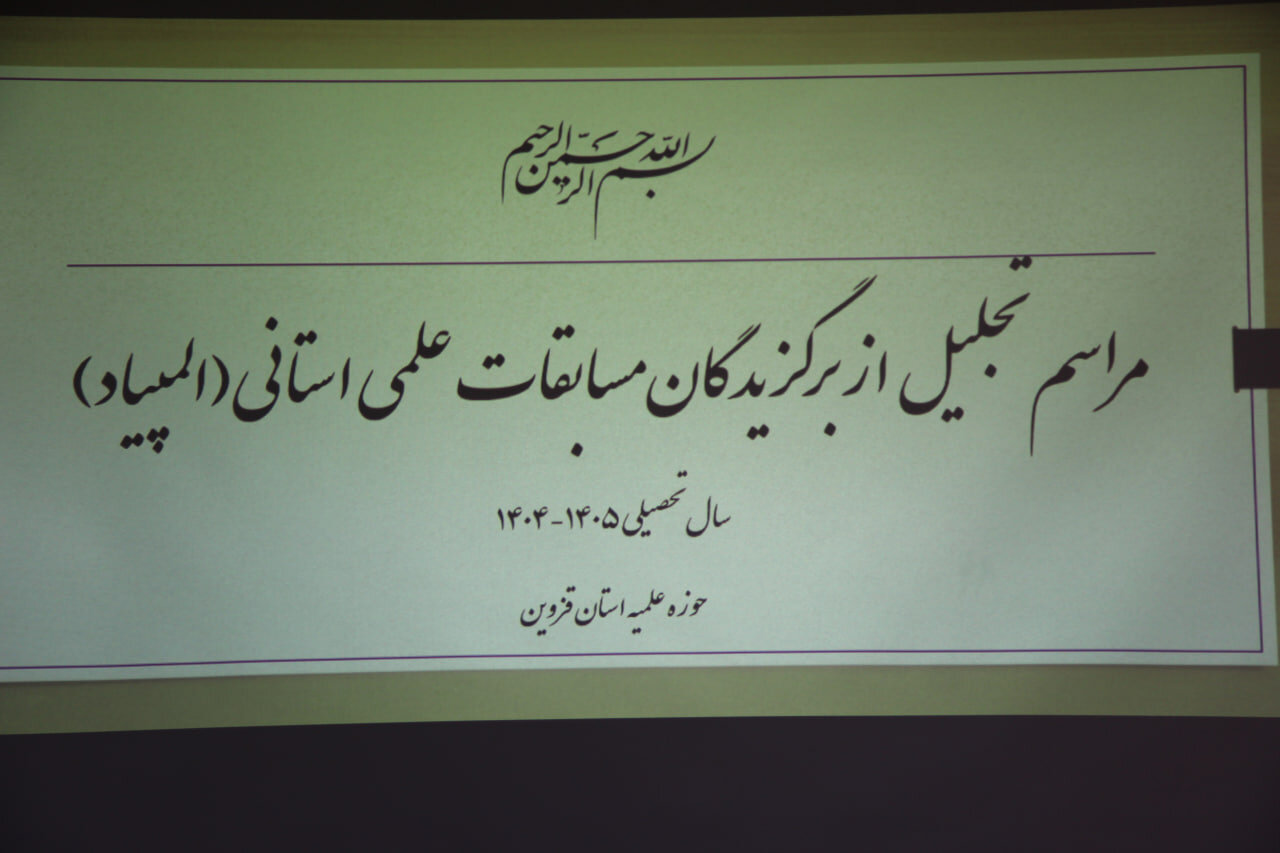 بسم الله الرحمن الرحیم
مراسم تجلیل از برگزیدگان مسابقات علمی استانی (المپیاد)
سال تحصیلی ۱۴۰۵-۱۴۰۴
حوزه علمیه استان قزوین